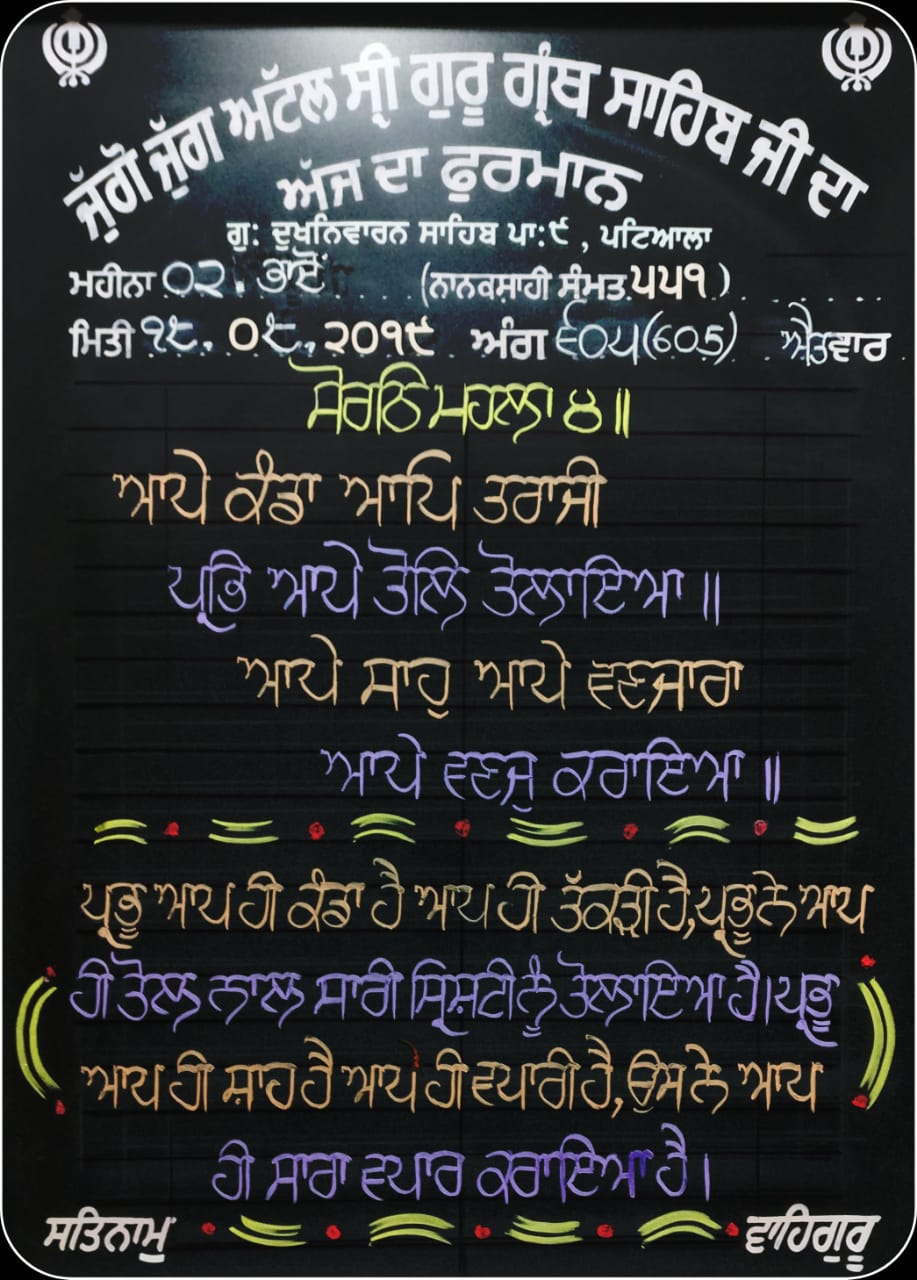 ਜੁੱਗੋ ਜੁੱਗ ਅੱਟਲ ਸ੍ਰੀ ਗੁਰੂ ਗ੍ਰੰਥ ਸਾਹਿਬ ਜੀ ਦਾ
ਅੱਜ ਦਾ ਫੁਰਮਾਨ
ਗੁ: ਦੁਖਨਿਵਾਰਨ ਸਾਹਿਬ ਪਾ:੯ , ਪਟਿਆਲਾ
ਮਹੀਨਾ ੦੨. ਭਾਦੋਂ (ਨਾਨਕਸ਼ਾਹੀ ਸੰਮਤ ੫੫੧)
ਮਿਤੀ ੧੮. ੦੮. ੨੦੧੯ ਅੰਗ ੬੦੫(605) ਐਤਵਾਰ
ਸੋਰਠਿ ਮਹਲਾ ੪॥
ਆਪੇ ਕੰਡਾ ਆਪਿ ਤਰਾਜੀ
ਪ੍ਰਭਿ ਆਪੇ ਤੋਲਿ ਤੋਲਾਇਆ॥
ਆਪੇ ਸਾਹੁ ਆਪੇ ਵਣਜਾਰਾ
ਆਪੇ ਵਣਜੁ ਕਰਾਇਆ॥
ਪ੍ਰਭੂ ਆਪ ਹੀ ਕੰਡਾ ਹੈ ਆਪ ਹੀ ਤੱਕੜੀ ਹੈ,ਪ੍ਰਭੂ ਨੇ ਆਪ
ਹੀ ਤੋਲ ਨਾਲ ਸਾਰੀ ਸ੍ਰਿਸ਼ਟੀ ਨੂੰ ਤੋਲਾਇਆ ਹੈ।ਪ੍ਰਭੂ
ਆਪ ਹੀ ਸ਼ਾਹ ਹੈ ਆਪ ਹੀ ਵਪਾਰੀ ਹੈ,ਉਸ ਨੇ ਆਪ
ਹੀ ਸਾਰਾ ਵਪਾਰ ਕਰਾਇਆ ਹੈ।
ਸਤਿਨਾਮੁ ਵਾਹਿਗੁਰੂ